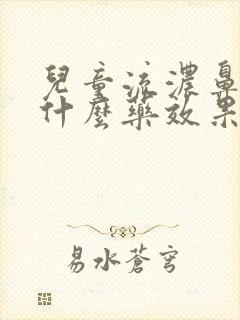 兒童流濃鼻
什麼藥效果
易水蒼穹